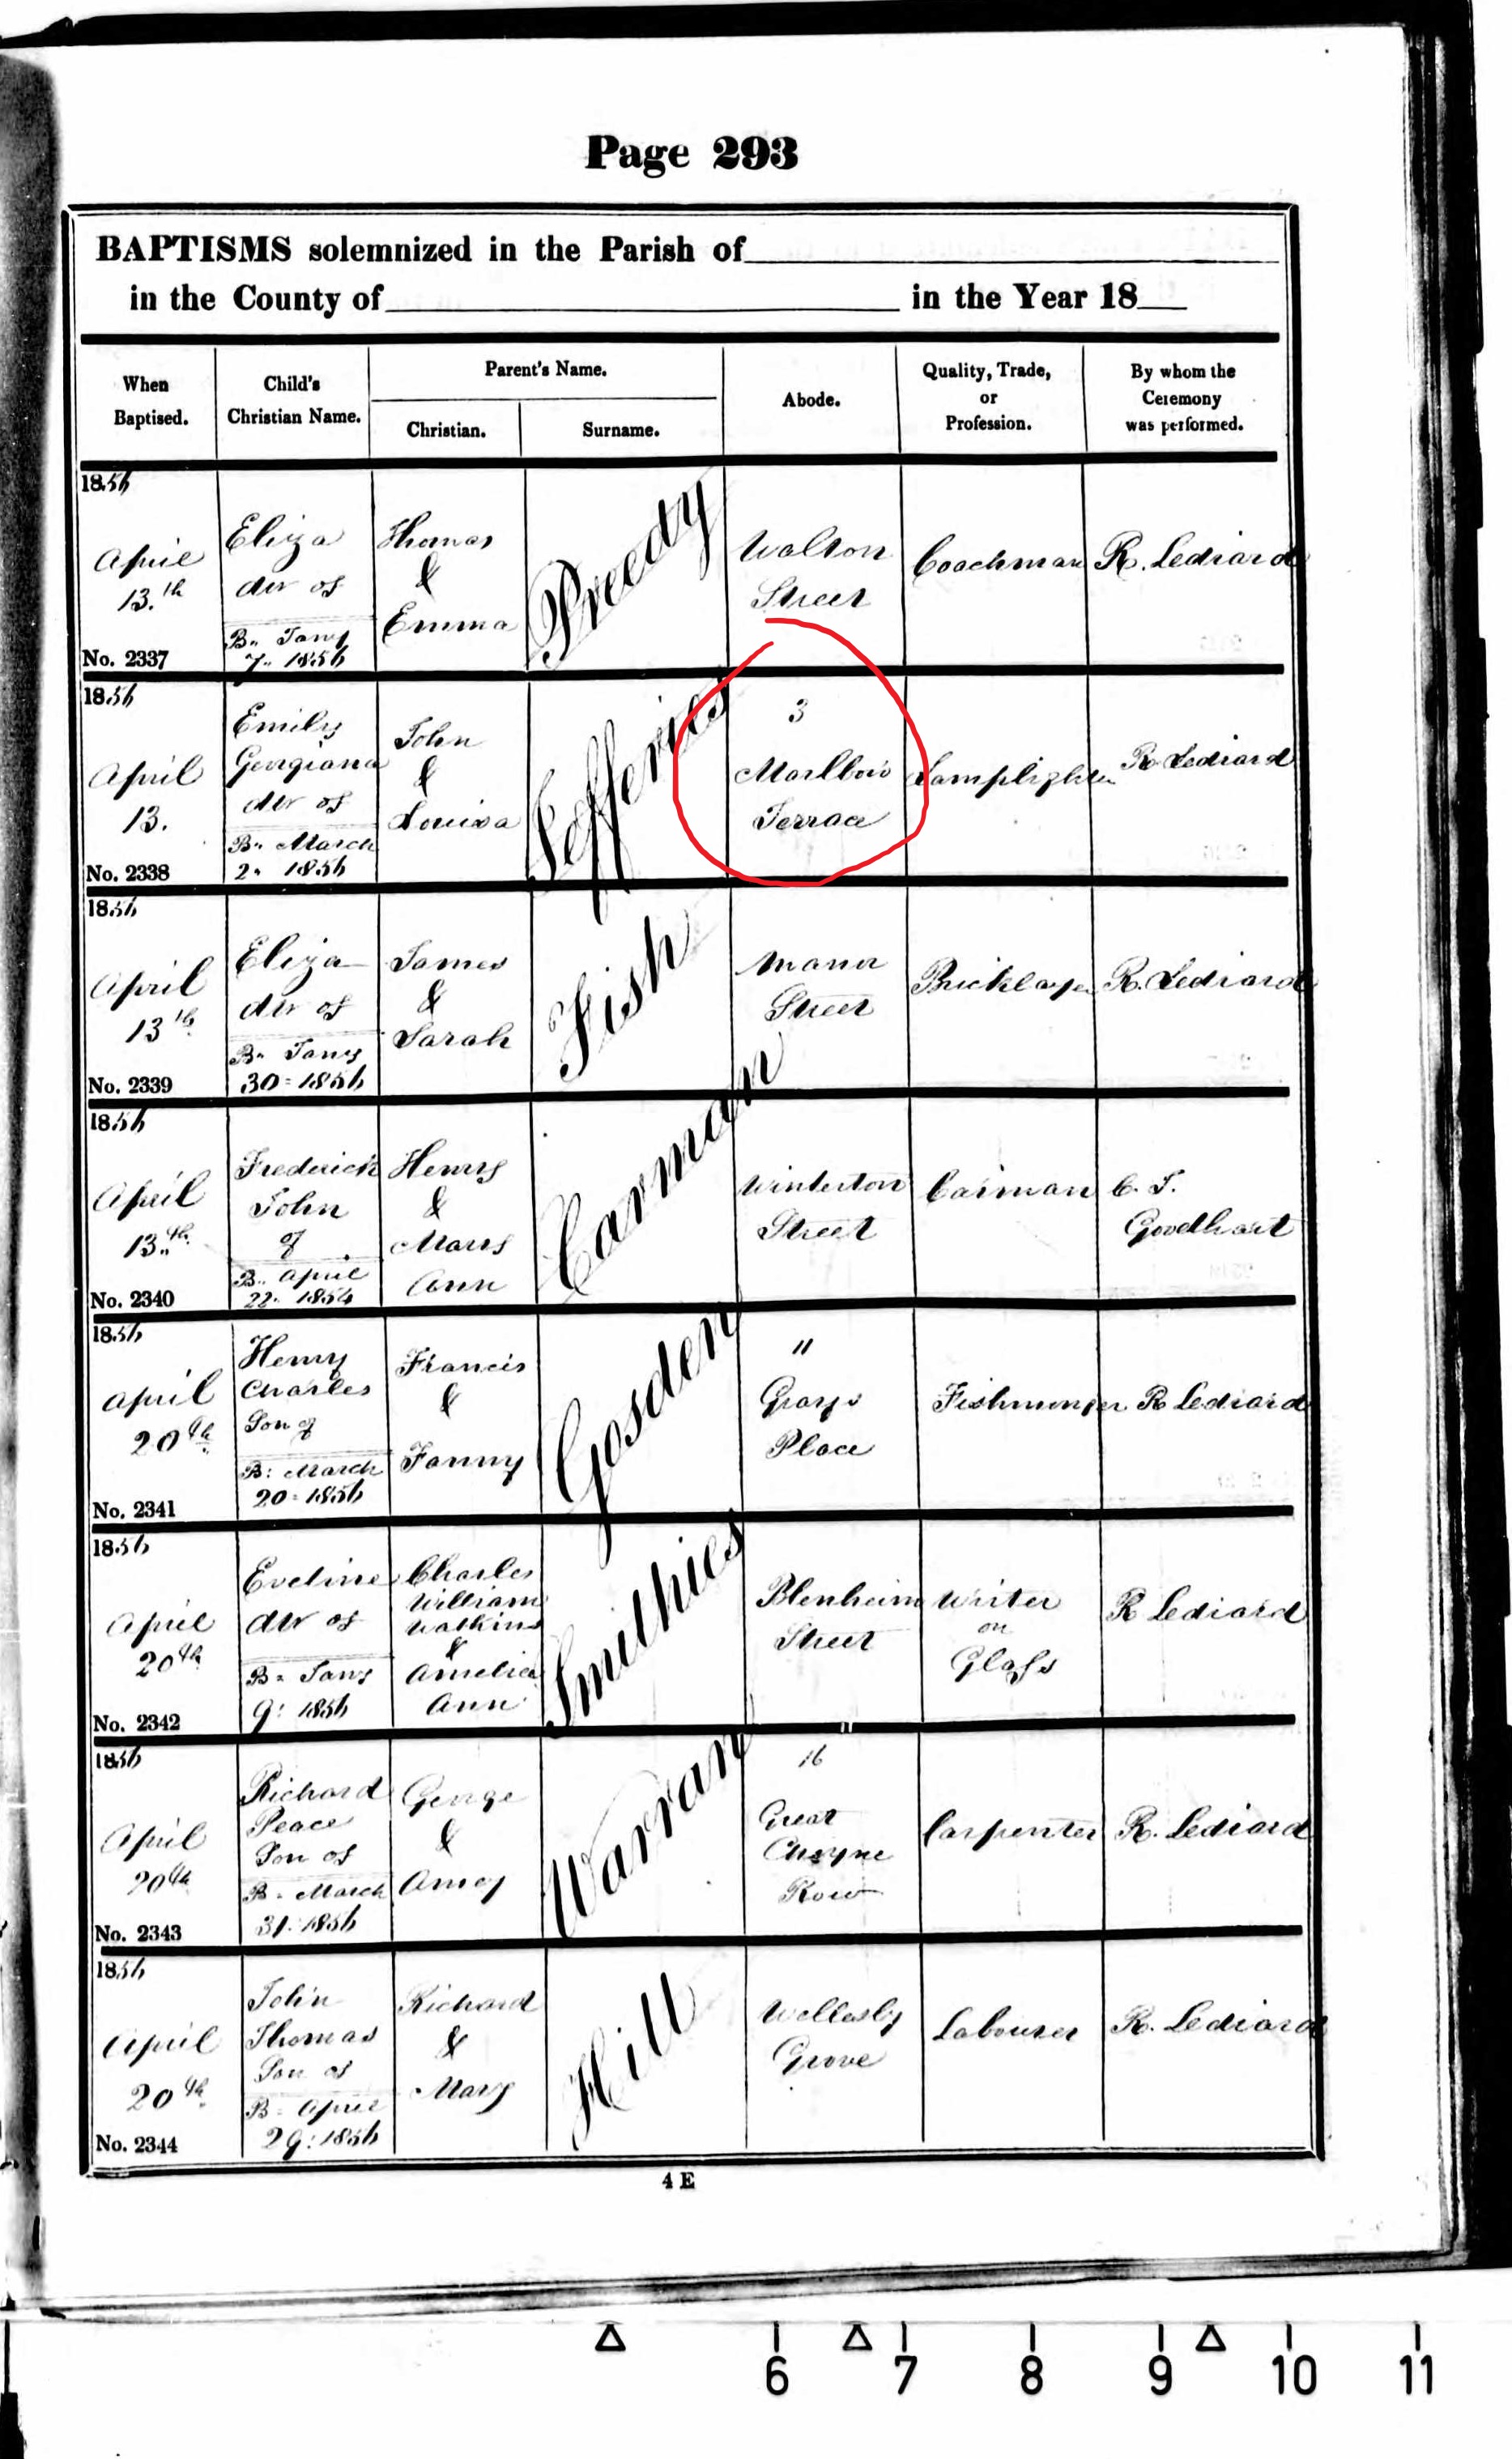 Page 293
BAPTISMS solemnized in the Parish of
in the County of in the Year 18
When Baptised.
Child's Christian Name.
Parent's Name.
Christian.
Surname.
Abode.
Quality, Trade, or Profession.
By whom the Ceremony was performed.
1856
April
13.th
No. 2337
Eliza
dtr of
B.. Jany
7.. 1856
Thomas
&
Emma
Preedy
Walton
Street
Coachman
R. Lediard
1856
April
13.
No. 2338
Emily
Georgiana
dtr of
B.. March
2. 1856
John
&
Louisa
Jefferies
3
Marlbro
Terrace
Lamplighter
R Lediard
1856
April
13th
No. 2339
Eliza
dtr of
B.. Jany
30 = 1856
James
&
Sarah
Fish
Manor
Street
Bricklayer
R. Lediard
1856
April
13th
No. 2340
Frederick
John
of
B.. April
22. 1854
Henry
&
Mary
Ann
Carman
Winterton
Street
Carman
C. J.
Goodhart
1856
April
20th
No. 2341
Henry
Charles
Son of
B: March
20 = 1856
Francis
&
Fanny
Gosden
11
Grays
Place
Fishmonger
R Lediard
1856
April
20th
No. 2342
Eveline
dtr of
B = Jany
9: 1856
Charles
William
Watkins
&
Amelia
Ann
Smithies
Blenheim
Street
Writer
on
Glass
R Lediard
1856
April
20th
No. 2343
Richard
Peace
Son of
B = March
31: 1856
George
&
Amey
Warran
16
Great
Cheyne
Row
Carpenter
R. Lediard
1856
April
20th
No. 2344
John
Thomas
Son of
B = April
29: 1856
Richard
&
Mary
Hill
Wellesly
Grove
Labourer
R. Lediard
4 E
6 7 8 9 10 11